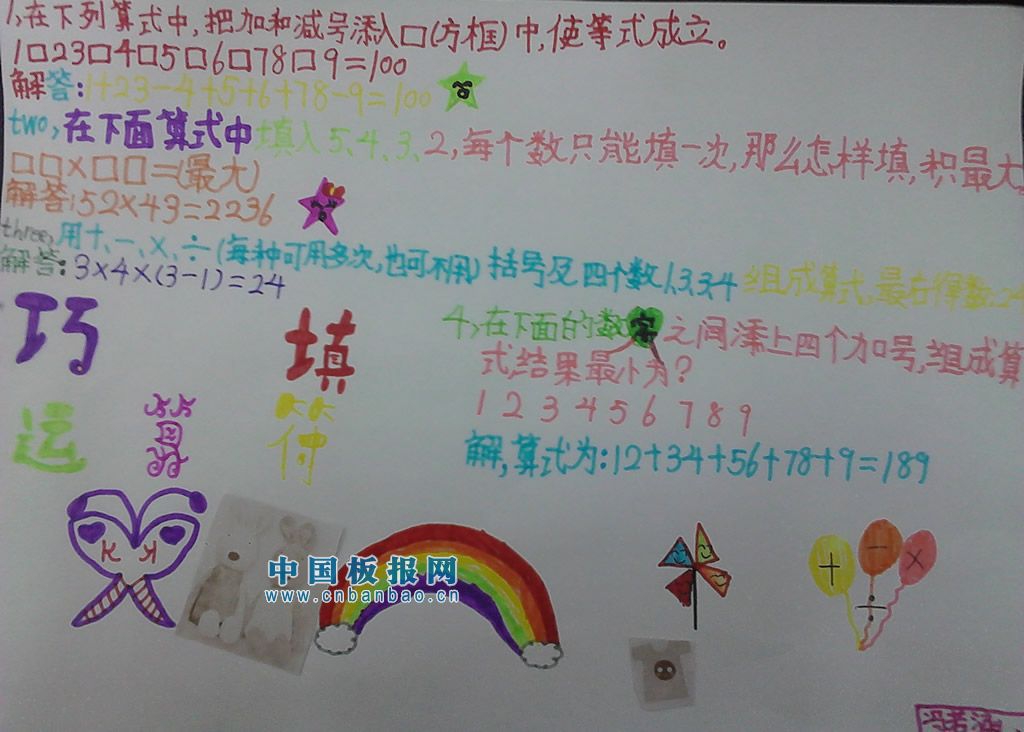 1,在下列算式中,把加和减号添入□(方框)中,使等式成立。
1□23□4□5□6□78□9=100
解答:1+23-4+5+6+78-9=100
two,在下面算式中填入5、4、3、2,每个数只能填一次,那么怎样填,积最大
□□×□□=(最大)
解答:52×43=2236
three,用十、一、×、÷(每种可用多次,也可不用)括号及四个数1,3,3,4组成算式,最右得数:24
解答:3×4×(3-1)=24
巧 填
运 算 符
4,在下面的数字之间添上四个加号,组成算
式,结果最小为?
1 2 3 4 5 6 7 8 9
解,算式为:12+34+56+78+9=189
中国板报网
www.cnbanbao.cn
+ - ×
÷